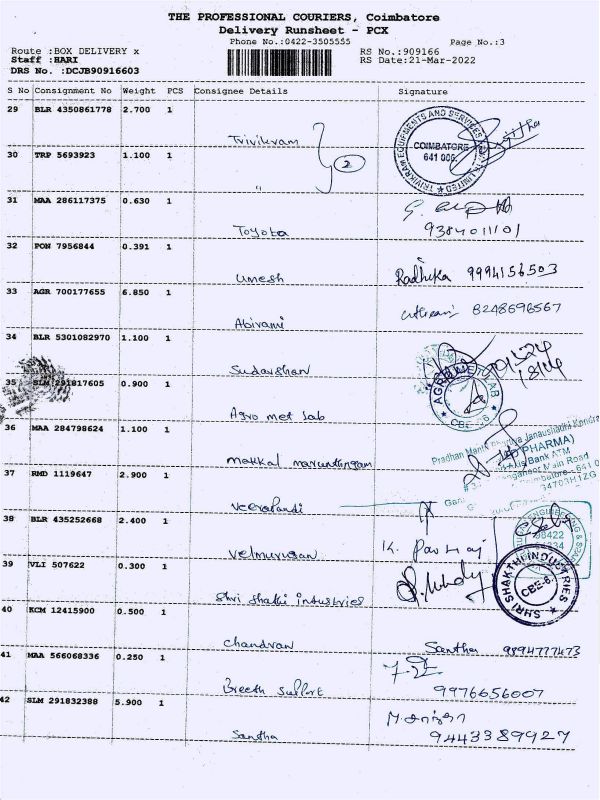 THE PROFESSIONAL COURIERS, Coimbatore
Delivery Runsheet - PCX
Phone No.:0422-3505555 Page No.:3
Route :BOX DELIVERY x RS No.:909166
Staff :HARI RS Date:21-Mar-2022
DRS No. :DCJB90916603
S No Consignment No Weight PCS Consignee Details Signature
29 BLR 4350861778 2.700 1
Trivikram
TRIVIKRAM EQUIPMENTS AND SERVICES
COIMBATORE
641 006.
30 TRP 5693923 1.100 1
" 2
31 MAA 286117375 0.630 1
Toyota 9384011101
32 PON 7956844 0.391 1
Umesh Radhika 9994156503
33 AGR 700177655 6.850 1
Abirami 8248696567
34 BLR 5301082970 1.100 1
Sudarshan
35 SLM 291817605 0.900 1
Agro met lab
CBE-6
36 MAA 284798624 1.100 1
makkal marunthagam
37 RMD 1119647 2.900 1
Veerapandi
38 BLR 435252668 2.400 1
Velmurugan
39 VLI 507622 0.300 1
Shri Shakthi industries
SHRI SHAKTHI INDUSTRIES
CBE-6.
40 KCM 12415900 0.500 1
Chandran Santha 9894777473
41 MAA 566068336 0.250 1
9976656007
42 SLM 291832388 5.900 1
Santha 9443389927